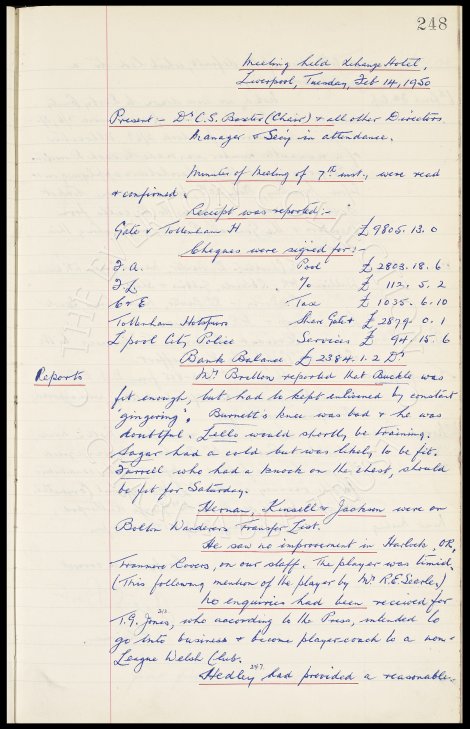 248
Meeting held Xchange Hotel,
Liverpool, Tuesday, Feb 14, 1950
Present – Dr C.S. Baxter (Chair) & all other Directors
Manager & Secy in attendance.
Minutes of Meeting of 7th inst., were read
& confirmed.
Receipt was reported:-
Gate v Tottenham H £9805. 13. 0
Cheques were signed for:-
F.A. Pool £ 2803. 18. 6
F.L % £ 112. 5. 2
C & E Tax £ 1035. 6. 10
Tottenham Hotspurs Share Gate £ 2879. 0. 1
L'pool City Police Services £ 94. 15. 6
Bank Balance £ 2384. 1. 2 Dr
Reports
Mr Britton reported that Buckle was
fit enough, but had to be kept enlivened by constant
'gingering'. Burnett's knee was bad & he was
doubtful. Lello would shortly be training.
Sagar had a cold but was likely to be fit.
Farrell who had a knock on the chest, should
be fit for Saturday.
Hernan, Kinsell & Jackson were on
Bolton Wanderers Transfer List.
He saw no improvement in Harlock, OR,
Tranmere Rovers, on our staff. The player was timid.
(This following mention of the player by Mr R.E. Searle.)
No enquiries had been received for
T.G. Jones, who according to the Press, intended to
go into business & become player-coach to a non-
League Welsh Club.
247
Hedley had provided a reasonable